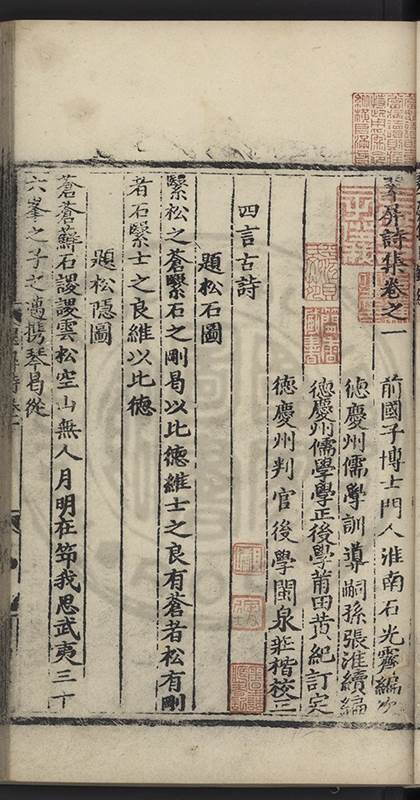 翠屏詩集卷之一
前國子博士門人淮南石光霽編次
德慶州儒學訓導嗣孫張淮續編
德慶州儒學學正後學莆田黃紀訂定
德慶州判官後學閩泉莊楷校正
四言古詩
題松石圖
緊松之蒼緊石之剛曷以比德維士之良有蒼者松有剛
者石緊士之良維以比德
題松隱圖
蒼蒼蘚石謖謖雲松空山無人月明在筇我思武夷三十
六峯之子之邁携琴曷從